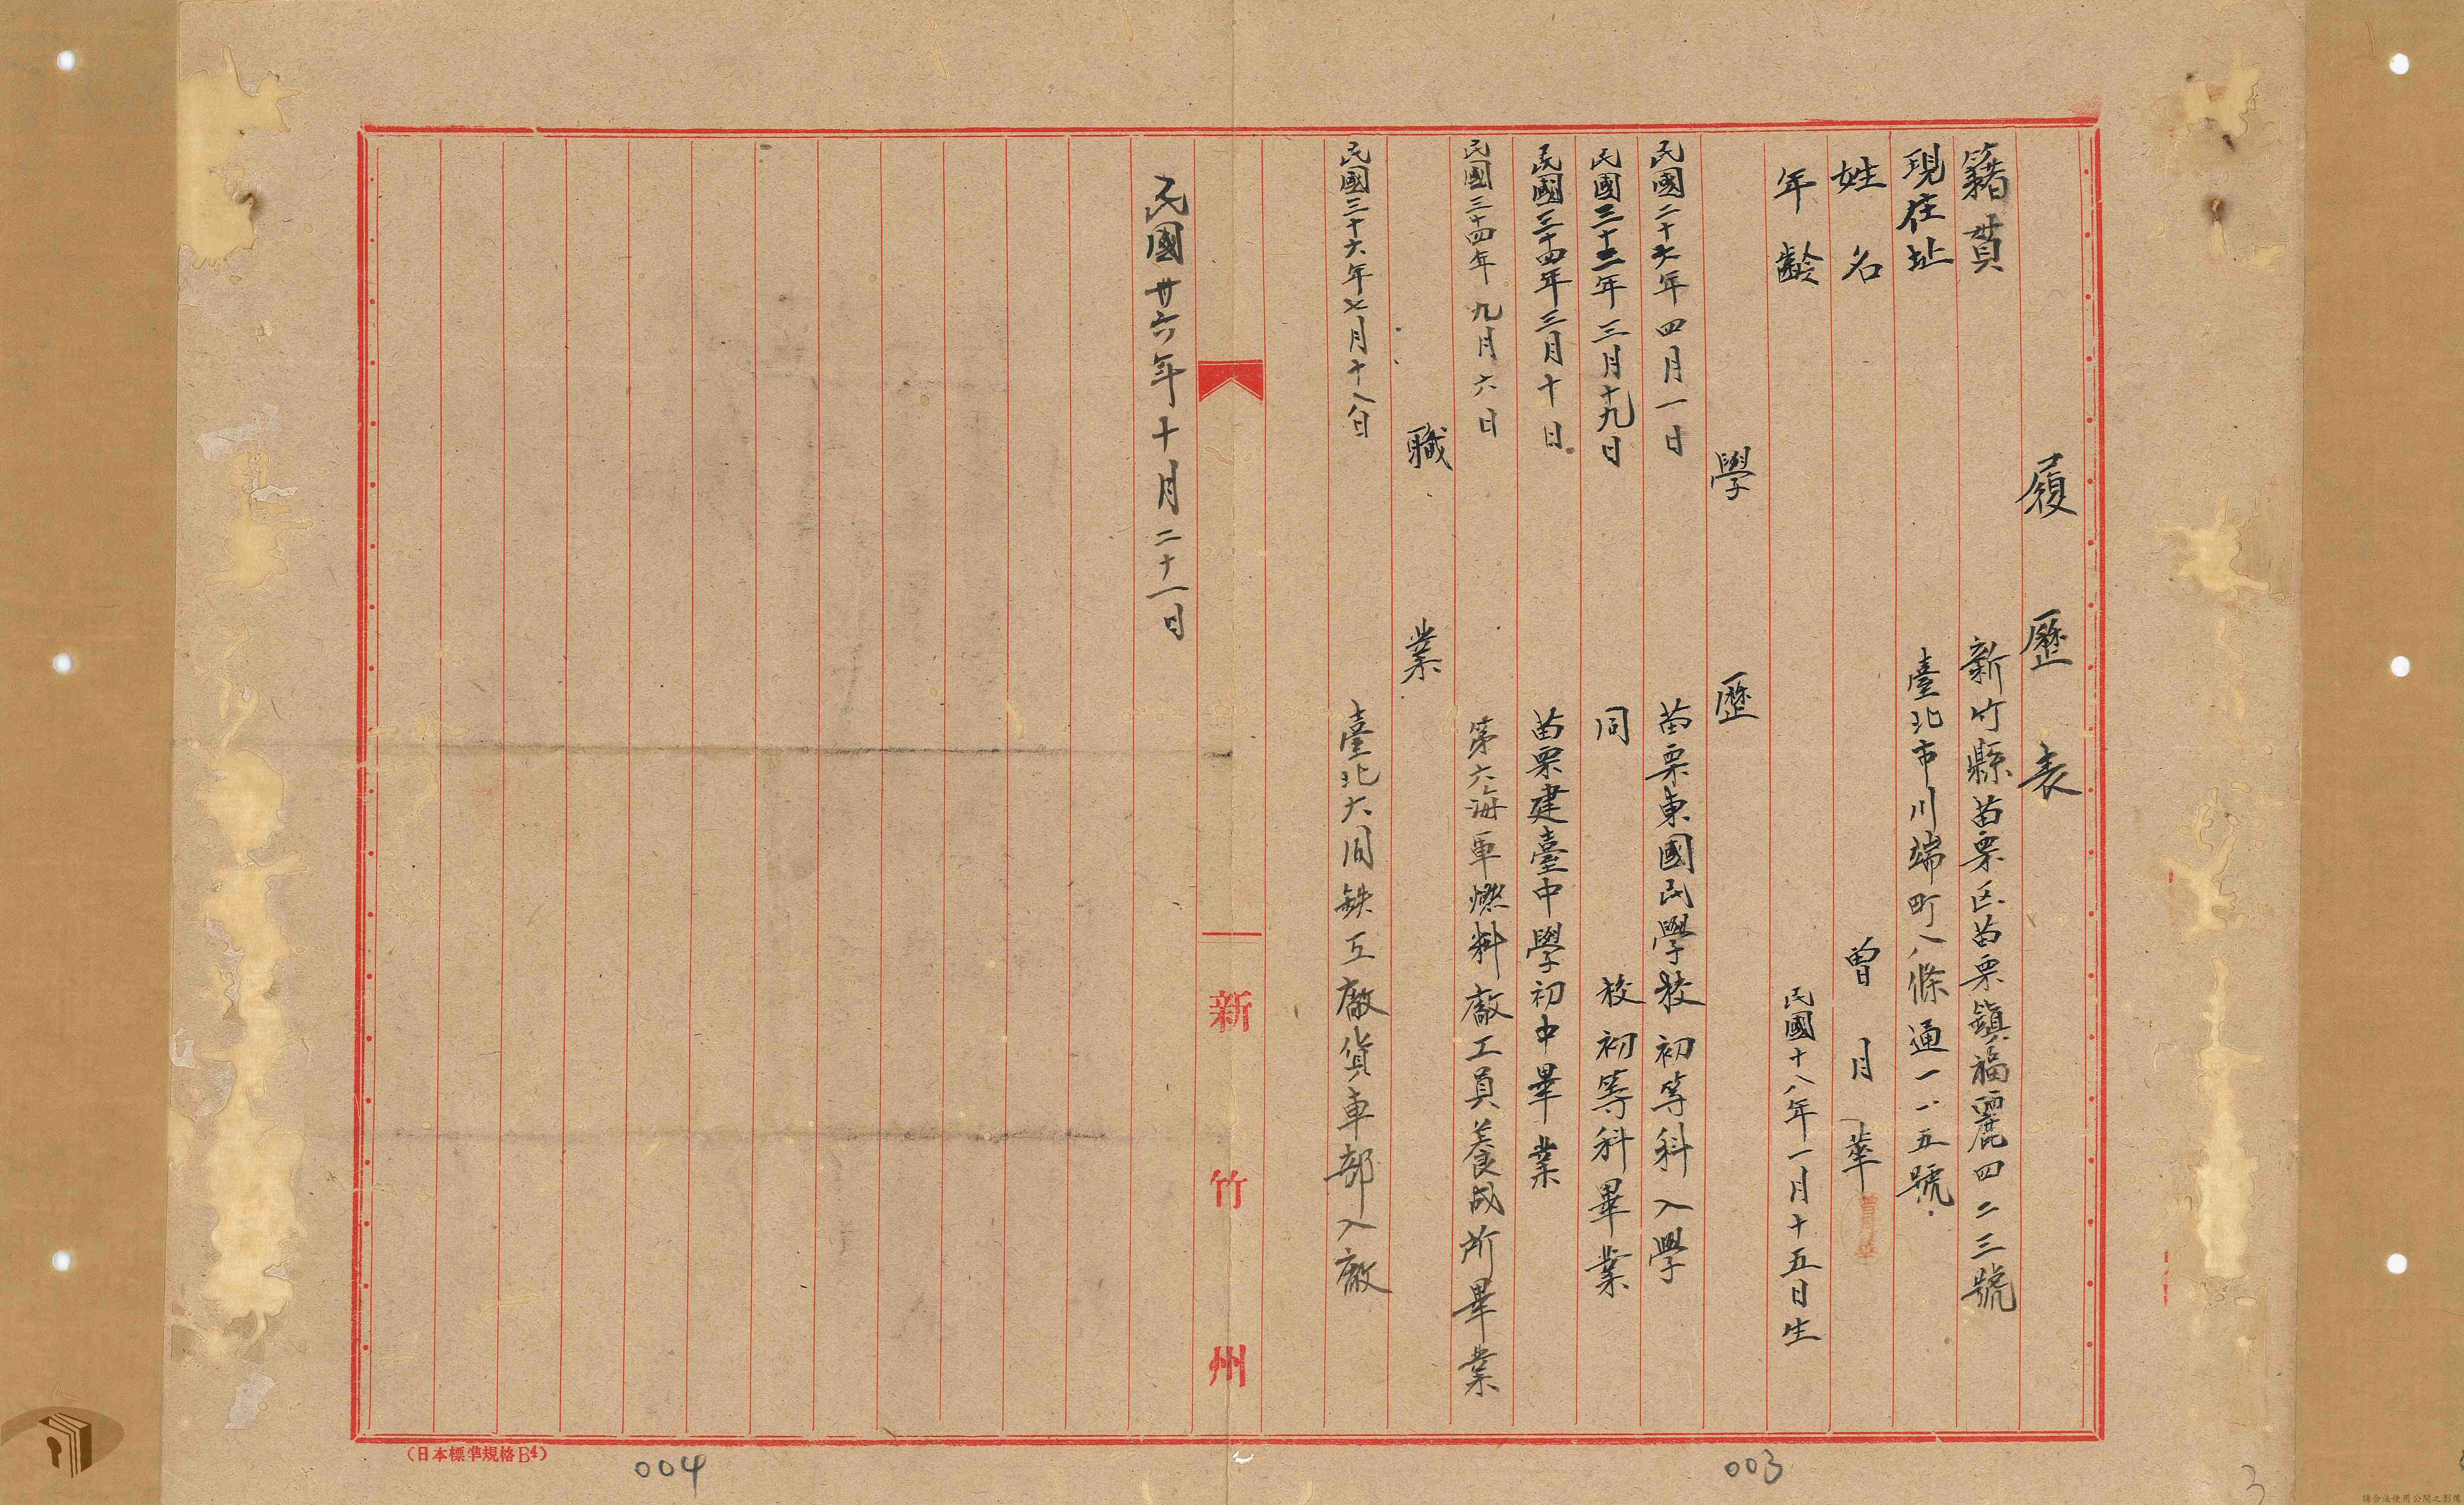 履歷表
籍貫 新竹縣苗栗区苗栗鎮福麗四二三號
現住址 臺北市川端町八條通一一五號
姓名 曾月華
曾月華
年齡 民國十八年一月十五日生
學歷
民國二十七年四月一日 苗栗東國民學校初等科入學
民國三十二年三月十九日 同校初等科畢業
民國三十四年三月十日 苗栗建臺中學初中畢業
民國三十四年九月六日 第六海軍燃料廠工員養成所畢業
職業
民國三十六年七月十八日 臺北大同鉄工廠貨車部入廠
新竹州
民國卅六年十月二十一日
(日本標準規格B4)
004
003
3
請合法使用公開之影像